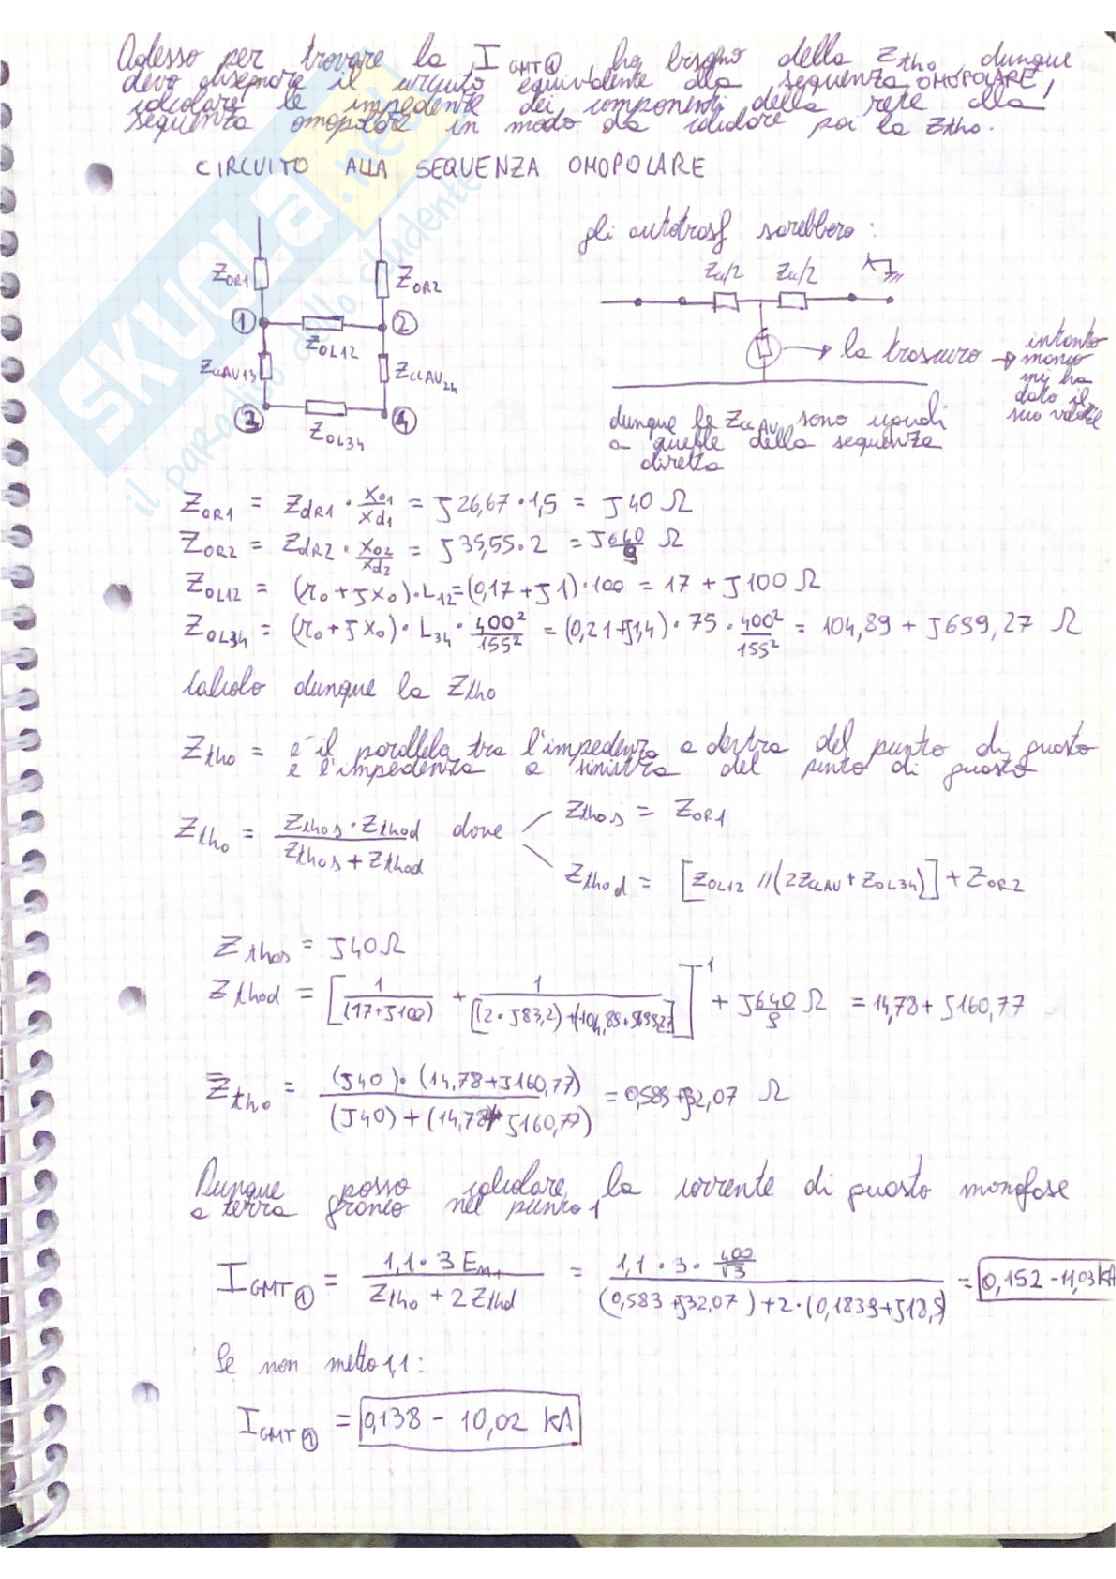 Adesso per trovare la I GMT① ho bisogno della Ztho, dunque
devo disegnare il circuito equivalente alla sequenza OMOPOLARE,
calcolare le impedenze dei componenti della rete alla
sequenza omopolare in modo da calcolare poi la Ztho.
CIRCUITO ALLA SEQUENZA OMOPOLARE
gli autotrasf sarebbero:
ZOR1 ZOR2
① ②
ZOL12
ZccAV13 ZccAV24
③ ④
ZOL34
Zcc/2 Zcc/2
la trascuro → intanto
manco
mi ha
dato il
suo valore
dunque le ZccAV sono uguali
a quelle della sequenza
diretta
ZOR1 = ZdR1 · X01/Xd1 = J26,67 · 1,5 = J40 Ω
ZOR2 = ZdR2 · X02/Xd2 = J35,55 · 2 = J640/9 Ω
ZOL12 = (r0 + JX0) · L12 = (0,17 + J1) · 100 = 17 + J100 Ω
ZOL34 = (r0 + JX0) · L34 · 400²/155² = (0,21+J1,4) · 75 · 400²/155² = 104,89 + J699,27 Ω
Calcolo dunque la Ztho
Ztho = è il parallelo tra l'impedenza a destra del punto di guasto
e l'impedenza a sinistra del punto di guasto
Ztho = Zthos · Zthod / Zthos + Zthod dove
Zthos = ZOR1
Zthod = [ZOL12 // (2ZccAV + ZOL34)] + ZOR2
Zthos = J40 Ω
Zthod = [1/(17+J100) + 1/[(2·J83,2)+(104,89+J699,27)]]⁻¹ + J640/9 Ω = 14,78 + J160,77
Ztho = (J40) · (14,78+J160,77) / (J40) + (14,78+J160,77) = 0,583+J32,07 Ω
Dunque posso calcolare la corrente di guasto monofase
a terra franco nel punto 1
I GMT① = 1,1 · 3 En / Ztho + 2 Zthd = 1,1 · 3 · 400/√3 / (0,583+J32,07) + 2 · (0,1839+J18,5) = 0,152 - 11,03 kA
Se non metto 1,1:
I GMT① = 0,138 - 10,02 kA
SKUOLA.net
il paradiso dello studente